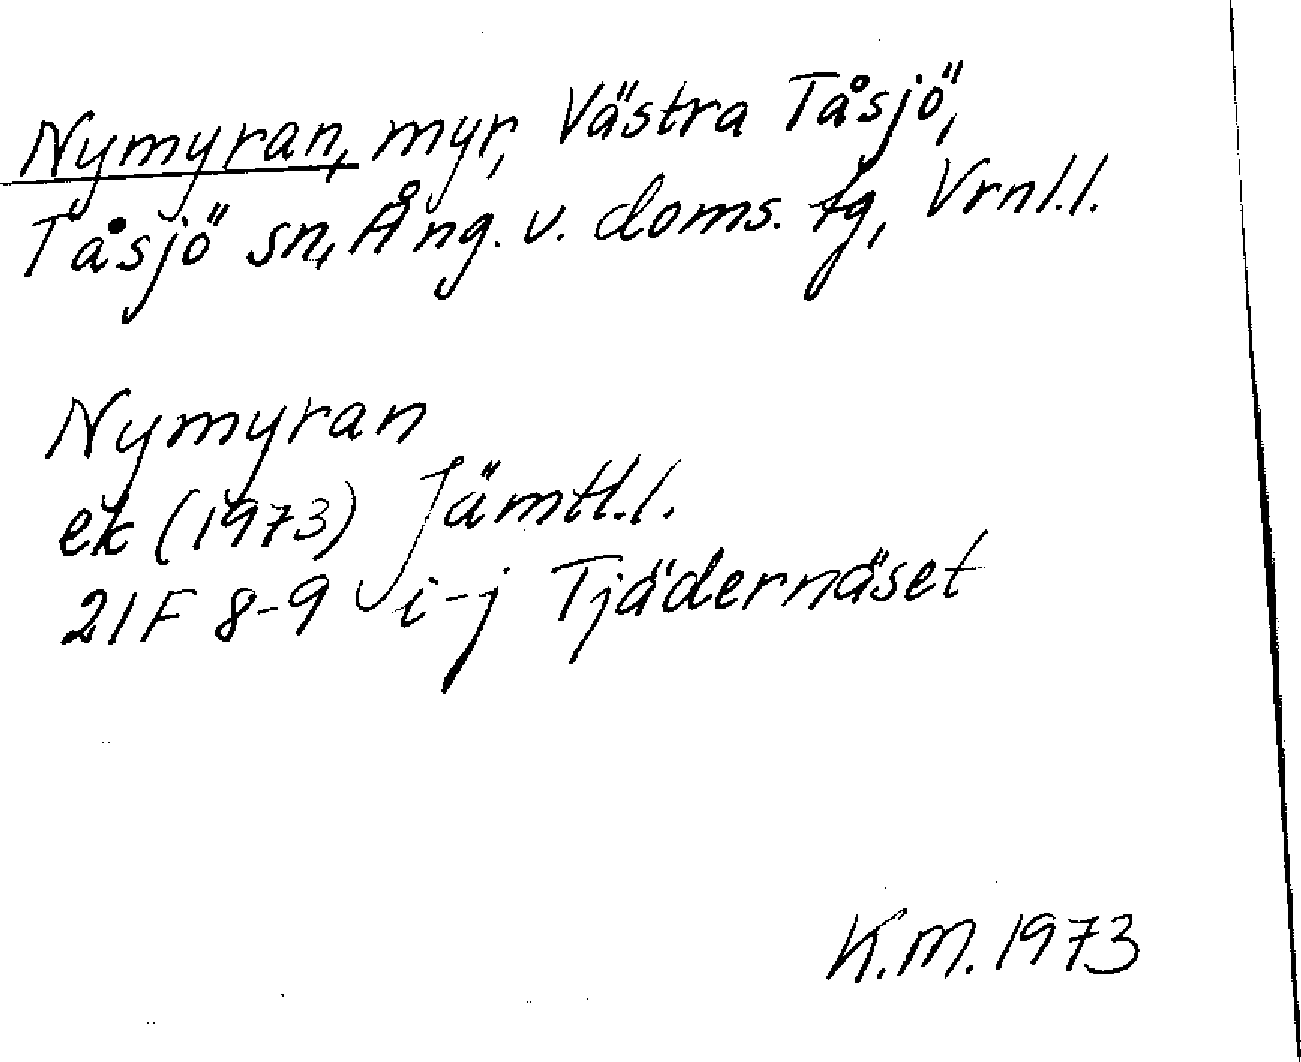 Nymyran, myr, Västra Tåsjö,
Tåsjö sn, Ång. v. doms. tg, Vrnl.l.
Nymyran
ek (1973) Jämtl.l.
21F 8-9 i-j Tjädernäset
K.M. 1973